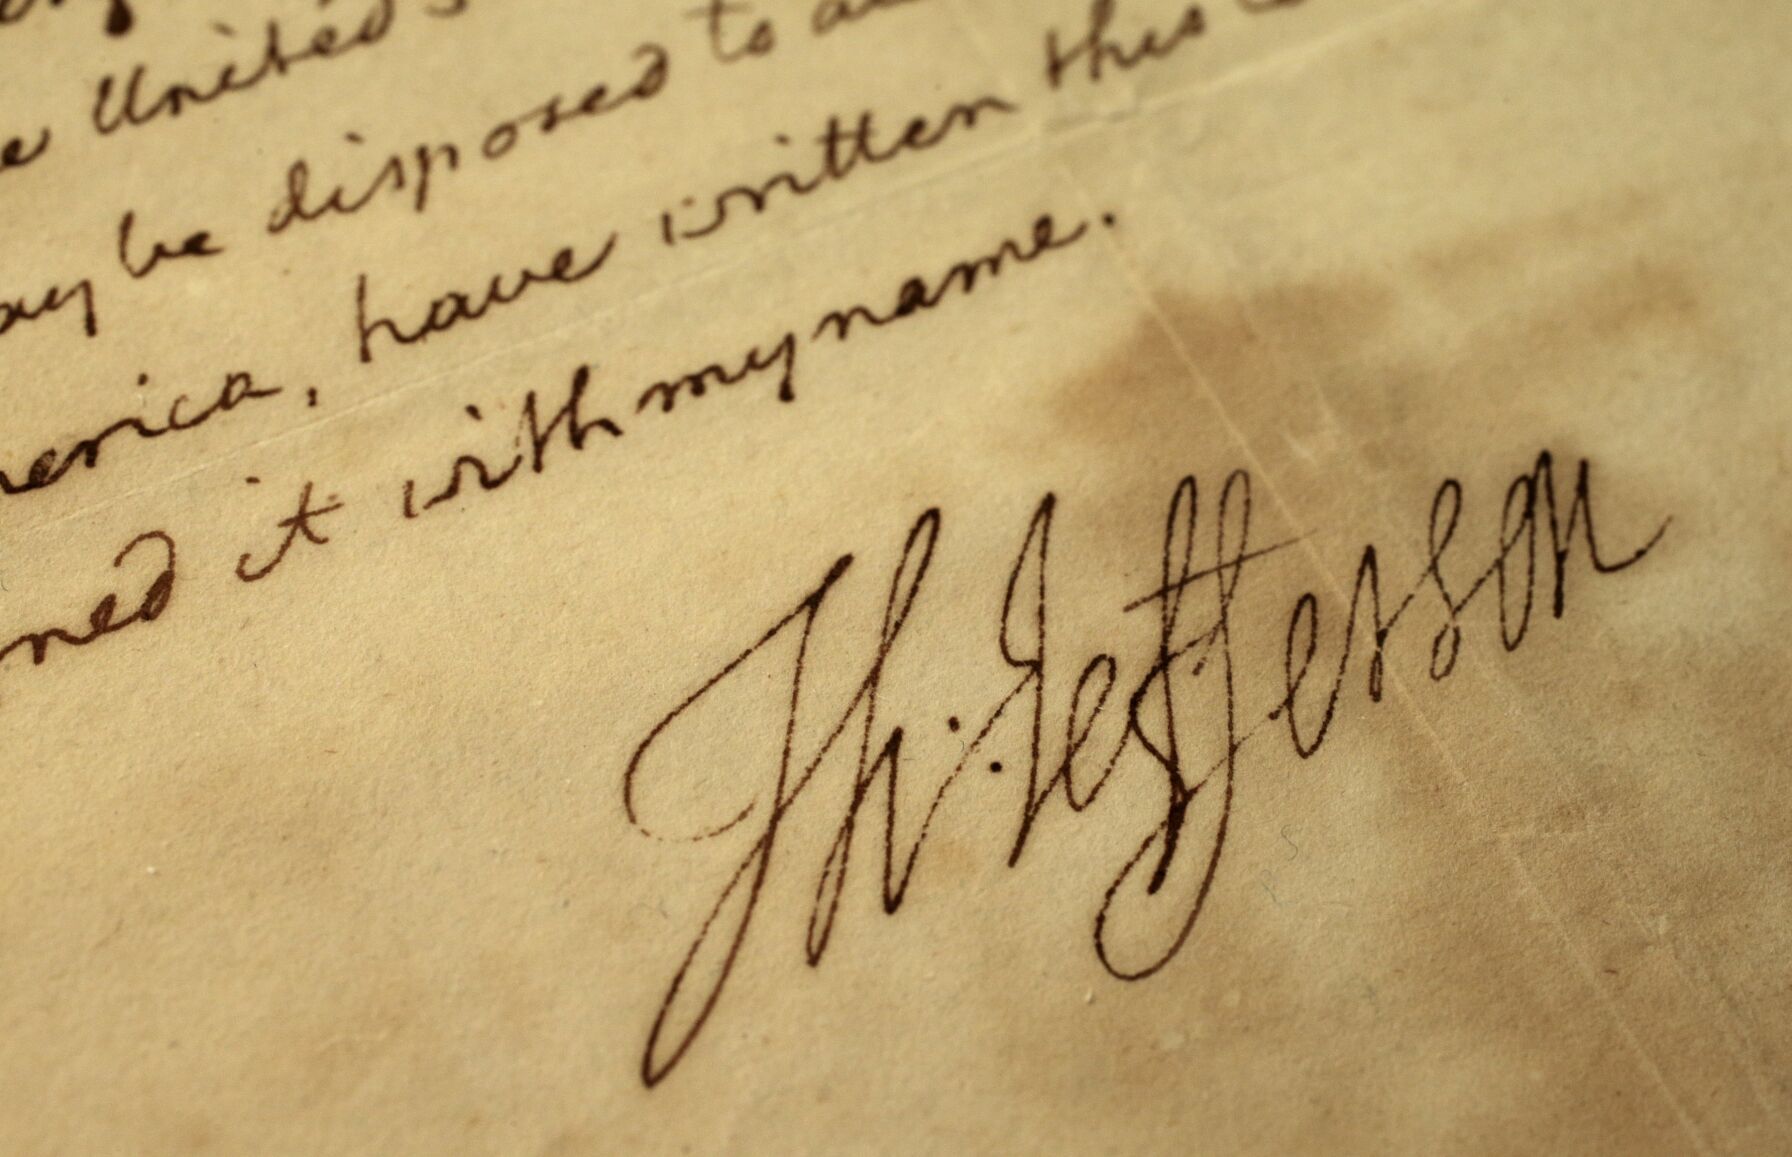 United
may be disposed to
merica, have written this
ned it with my name.
Th: Jefferson